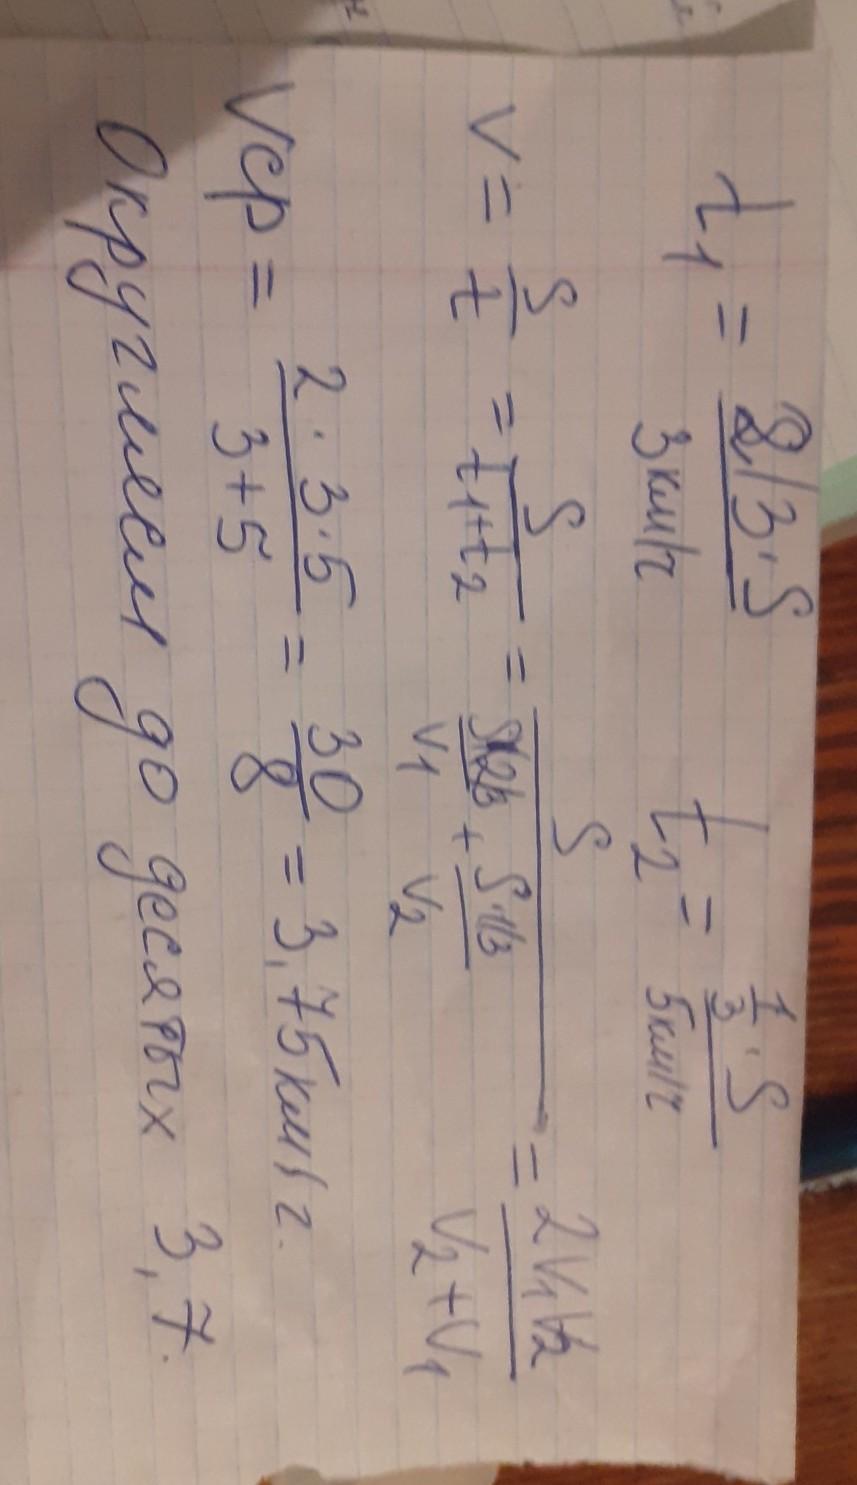 t₁ = 2/3·S / 3км/ч   t₂ = 1/3·S / 5км/ч
V = S/t = S/(t₁+t₂) = S/(S·2/3 / V₁ + S·1/3 / V₂) = 2V₁V₂/(V₂+V₁)
Vср = 2·3·5/(3+5) = 30/8 = 3,75км/ч.
Округляем до десятых 3,7.